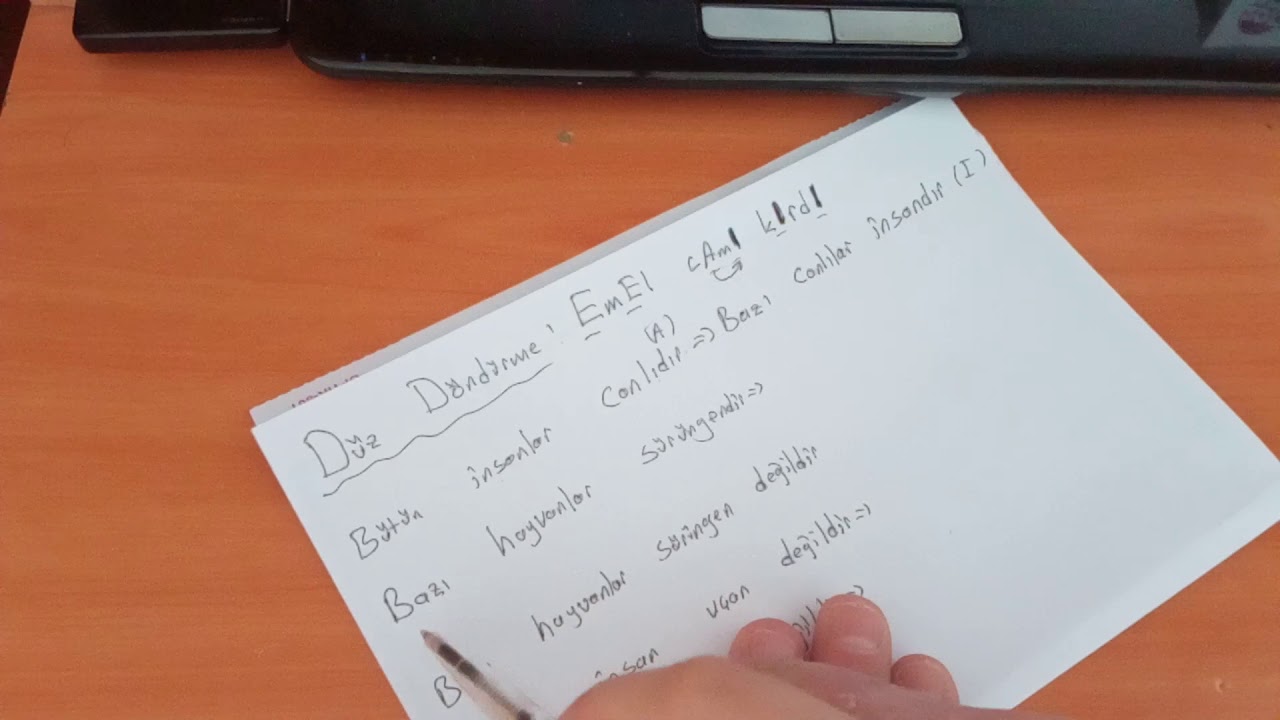 Düz Döndürme: EmEl cAmI kIrdI
(A)
Bütün insanlar canlıdır => Bazı canlılar insandır (I)
Bazı hayvanlar sürüngendir =>
hayvanlar sürüngen değildir
insan uçan değildir =>